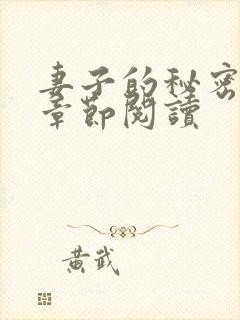 妻子的秘密
章節閱讀
黃武